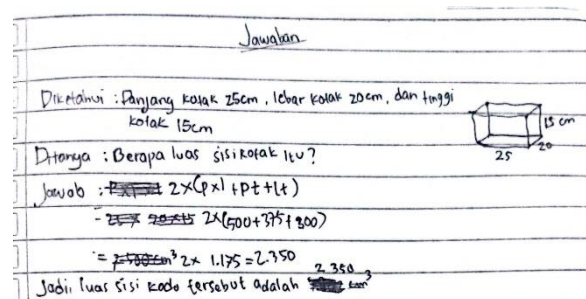 Jawaban
Diketahui : Panjang kotak 25cm, lebar kotak 20cm, dan tinggi
kotak 15cm
15 cm
20
25
Ditanya : Berapa luas sisi kotak itu?
Jawab : 2x(pxl + pt + lt)
= 2x(500+375+300)
= 2x 1.175 = 2.350
2.350
Jadi, luas sisi kado tersebut adalah cm³